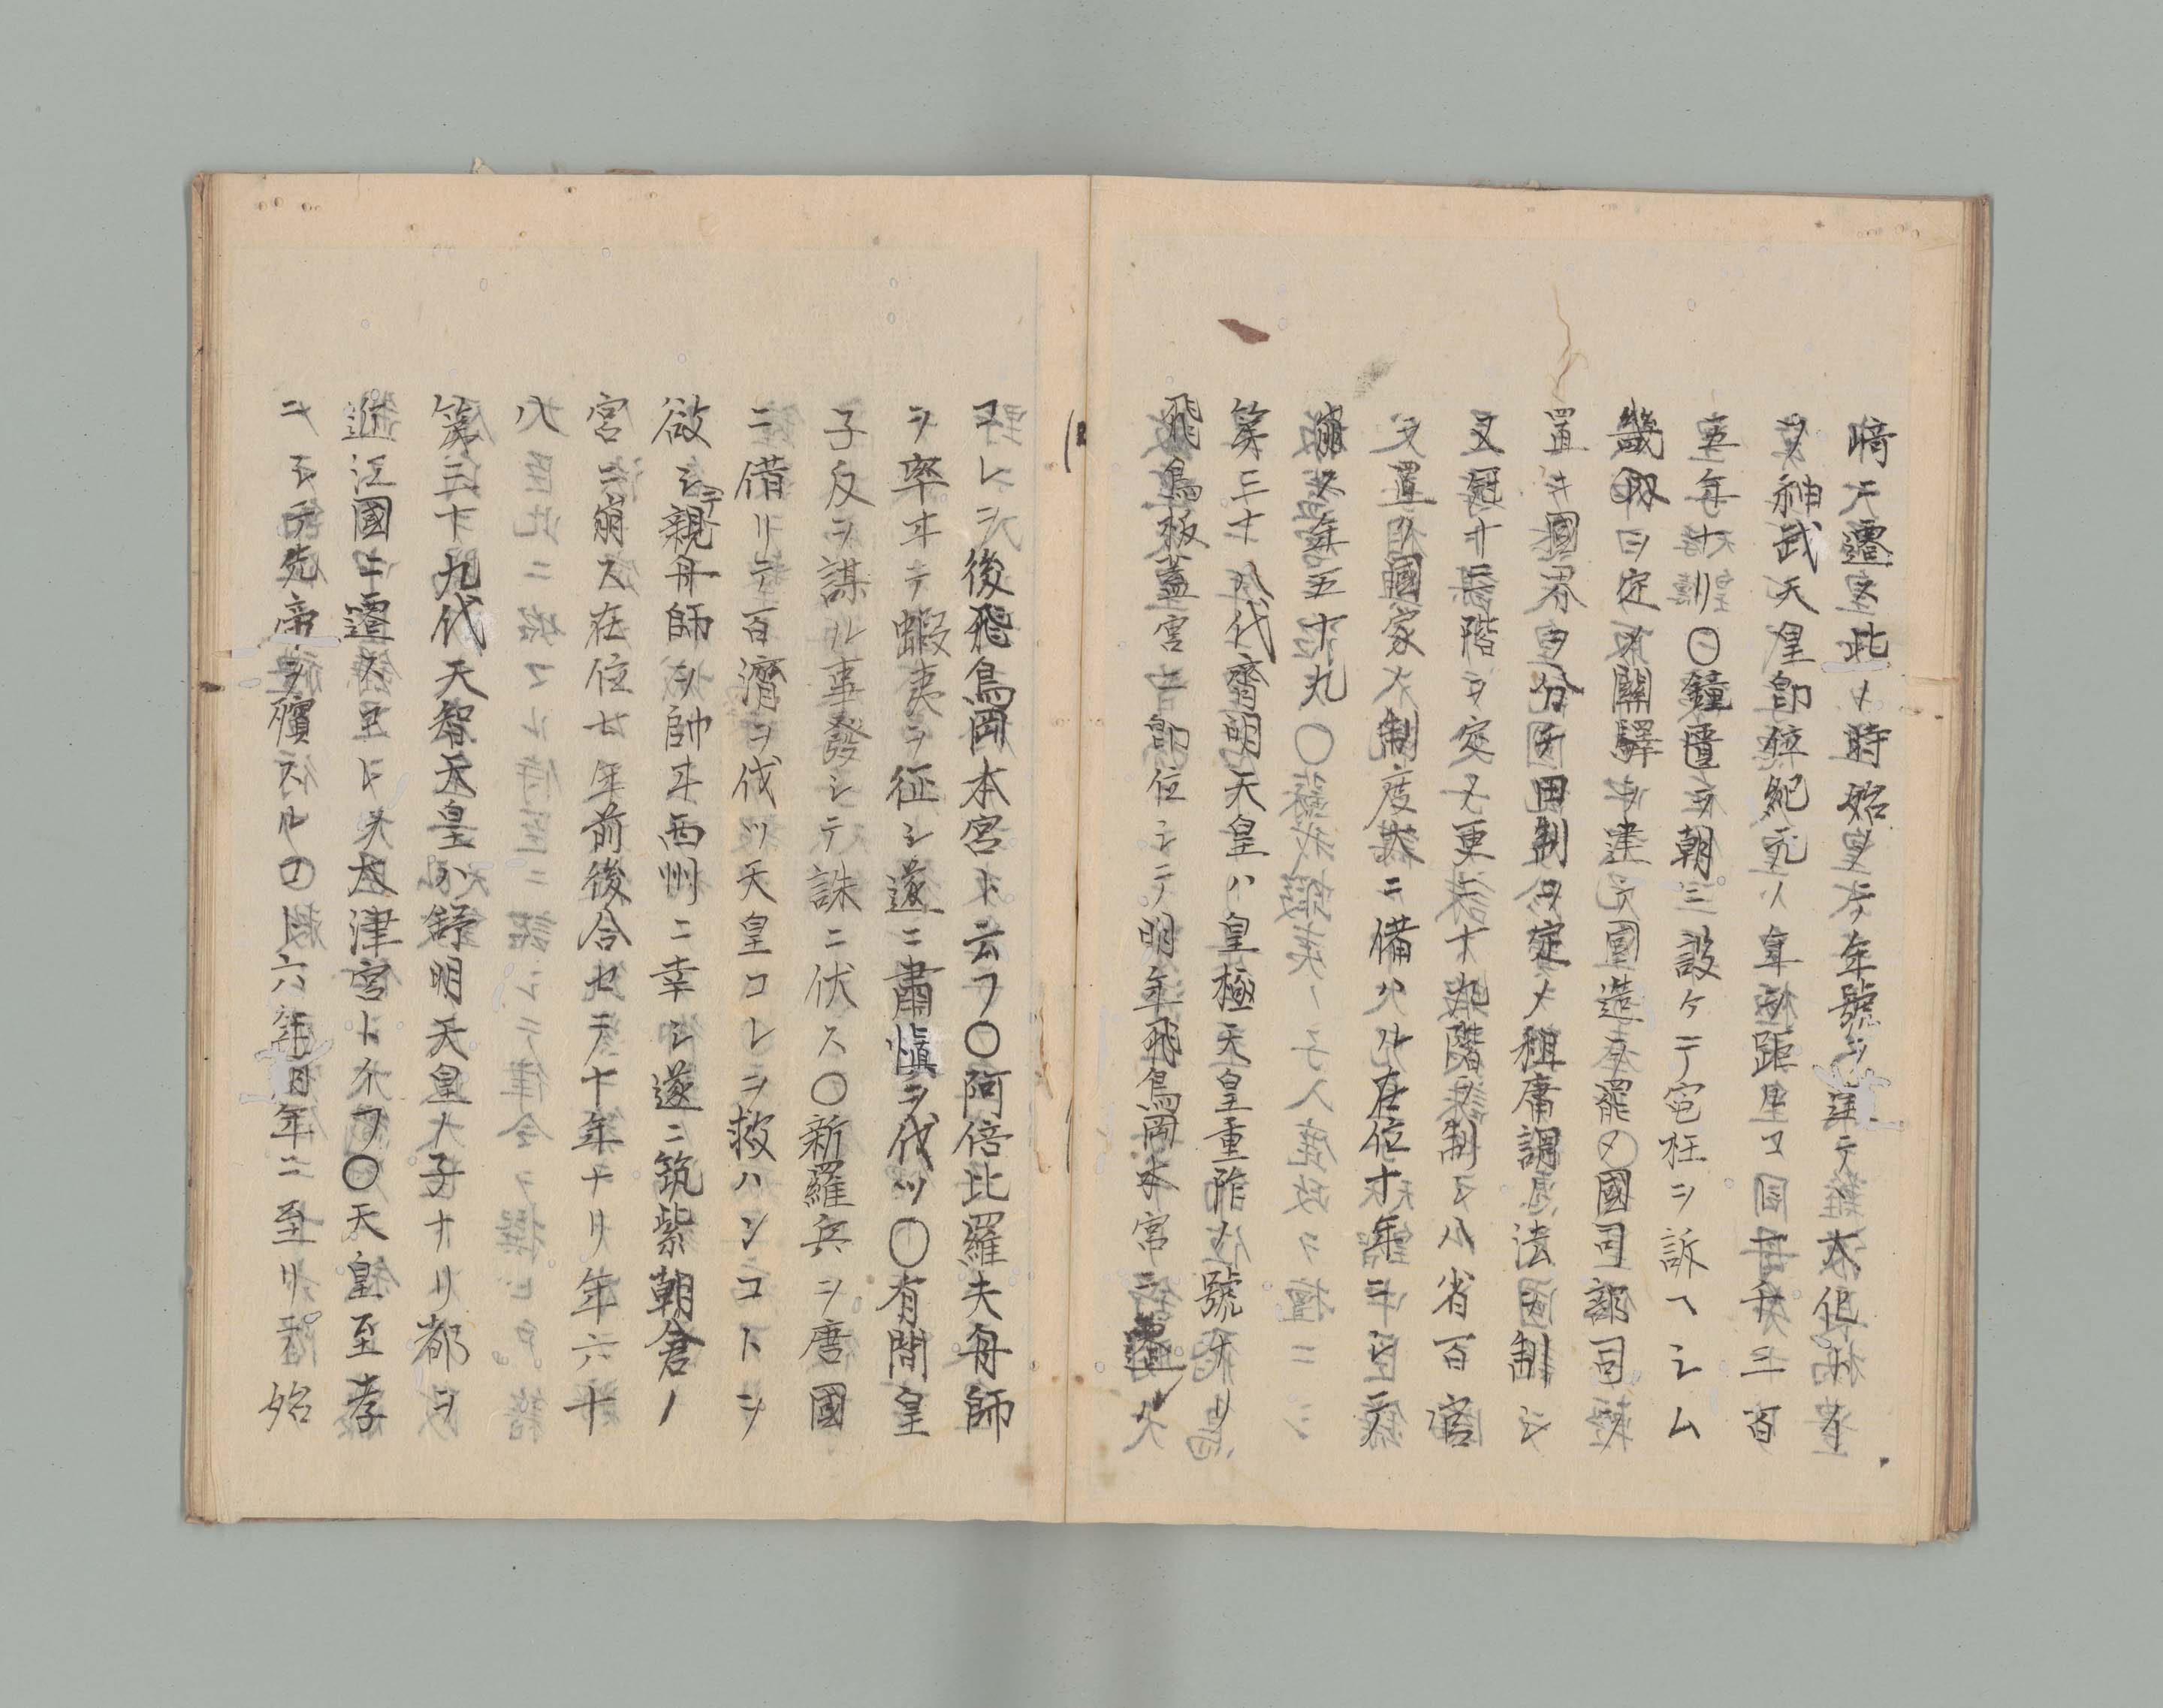 崎ニ遷ス此ノ時始メテ年號ヲ建テ大化ト云
フ神武天皇即位紀元ノ年ヲ距ルコ一千三百
五年ナリ〇鐘匱ヲ朝ニ設ケテ寃枉ヲ訴ヘシム
畿内ヲ定メ關驛ヲ建テ國造ヲ罷メ國司郡司ヲ
置キ國界ヲ分チ田制ヲ定メ租庸調ノ法ヲ制シ
又冠十三階ヲ定メ更ニ十九階ヲ制シ八省百官
ヲ置ク國家ノ制度大ニ備ハル在位十年ニシテ
崩ス年五十九
第三十八代齊明天皇ハ皇極天皇重祚ノ號ナリ
飛鳥板蓋宮ニ即位シ明年飛鳥岡本宮ニ遷ル
コレヲ後飛鳥岡本宮ト云フ〇阿倍比羅夫舟師
ヲ率ヰテ蝦夷ヲ征シ遂ニ肅愼ヲ伐ツ〇有間皇
子反ヲ謀ル事發シテ誅ニ伏ス〇新羅兵ヲ唐國
ニ備リテ百濟ヲ伐ツ天皇コレヲ救ハンコトヲ
欲シテ親舟師ヲ帥ヰ西州ニ幸シ遂ニ筑紫朝倉ノ
宮ニ崩ス在位七年前後合セテ十年ナリ年六十
八
第三十九代天智天皇ハ舒明天皇ノ子ナリ都ヲ
近江國ニ遷ス大津宮ト云フ〇天皇至孝
ニシテ先帝ヲ殯スル六年ニ至リ始